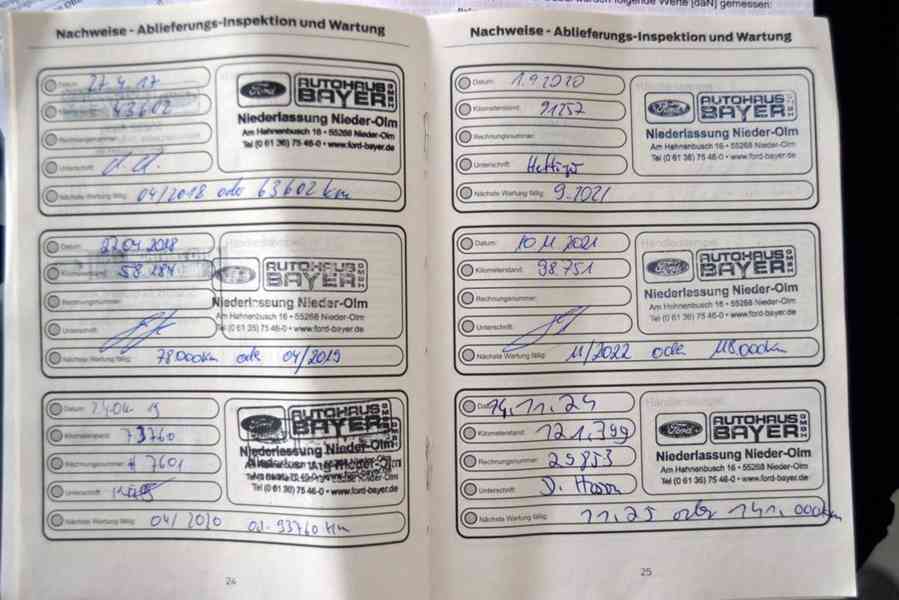 folgende Werte [daN] gemessen:
Nachweise - Ablieferungs-Inspektion und Wartung
Datum: 27.4.17
43602
Unterschrift:
Nächste Wartung fällig: 04/2018 oder 63602 km
Ford AUTOHAUS BAYER GMBH
Niederlassung Nieder-Olm
Am Hahnenbusch 16 • 55268 Nieder-Olm
Tel (0 61 36) 75 46-0 • www.ford-bayer.de
Datum: 27.04.2018
Kilometerstand: 58.284
Rechnungsnummer:
Unterschrift:
Nächste Wartung fällig: 78000km ode 04/2019
AUTOHAUS BAYER GMBH
Niederlassung Nieder-Olm
Am Hahnenbusch 16 • 55268 Nieder-Olm
Tel (0 61 36) 75 46-0 • www.ford-bayer.de
Datum: 24.04.19
Kilometerstand: 73760
Rechnungsnummer: 7601
Unterschrift:
Nächste Wartung fällig: 04/2020 od. 93760 km
Ford AUTOHAUS BAYER
Niederlassung Nieder-Olm
Am Hahnenbusch 16
Tel (0 61 36) 75 46-0 • www.ford-bayer.de
24
Nachweise - Ablieferungs-Inspektion und Wartung
Datum: 1.9.2020
Kilometerstand: 91257
Rechnungsnummer:
Unterschrift:
Nächste Wartung fällig: 9.2021
Händlerstempel
Ford AUTOHAUS BAYER GMBH
Niederlassung Nieder-Olm
Am Hahnenbusch 16 • 55268 Nieder-Olm
Tel (0 61 36) 75 46-0 • www.ford-bayer.de
Datum: 10.11.2021
Kilometerstand: 98751
Rechnungsnummer:
Unterschrift:
Nächste Wartung fällig: 11/2022 ode 118.000km
Händlerstempel
Ford AUTOHAUS BAYER GMBH
Niederlassung Nieder-Olm
Am Hahnenbusch 16 • 55268 Nieder-Olm
Tel (0 61 36) 75 46-0 • www.ford-bayer.de
Datum: 14.11.24
Kilometerstand: 121.799
Rechnungsnummer: 25853
Unterschrift:
Nächste Wartung fällig: 11.25 oder 141.000km
Händlerstempel
Ford AUTOHAUS BAYER GMBH
Niederlassung Nieder-Olm
Am Hahnenbusch 16 • 55268 Nieder-Olm
Tel (0 61 36) 75 46-0 • www.ford-bayer.de
25